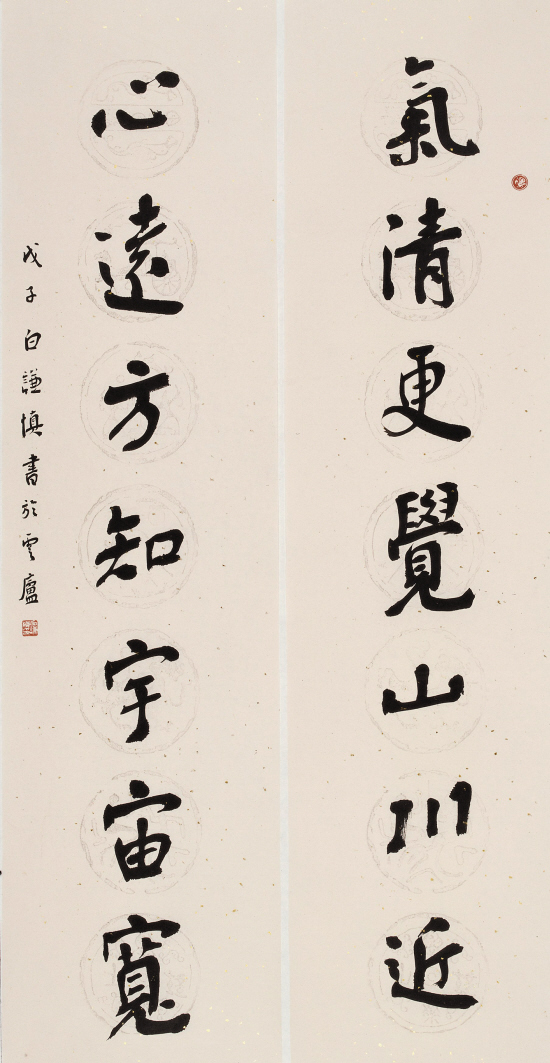 氣清更覺山川近
心遠方知宇宙寬
戊子白謙慎書於雲廬